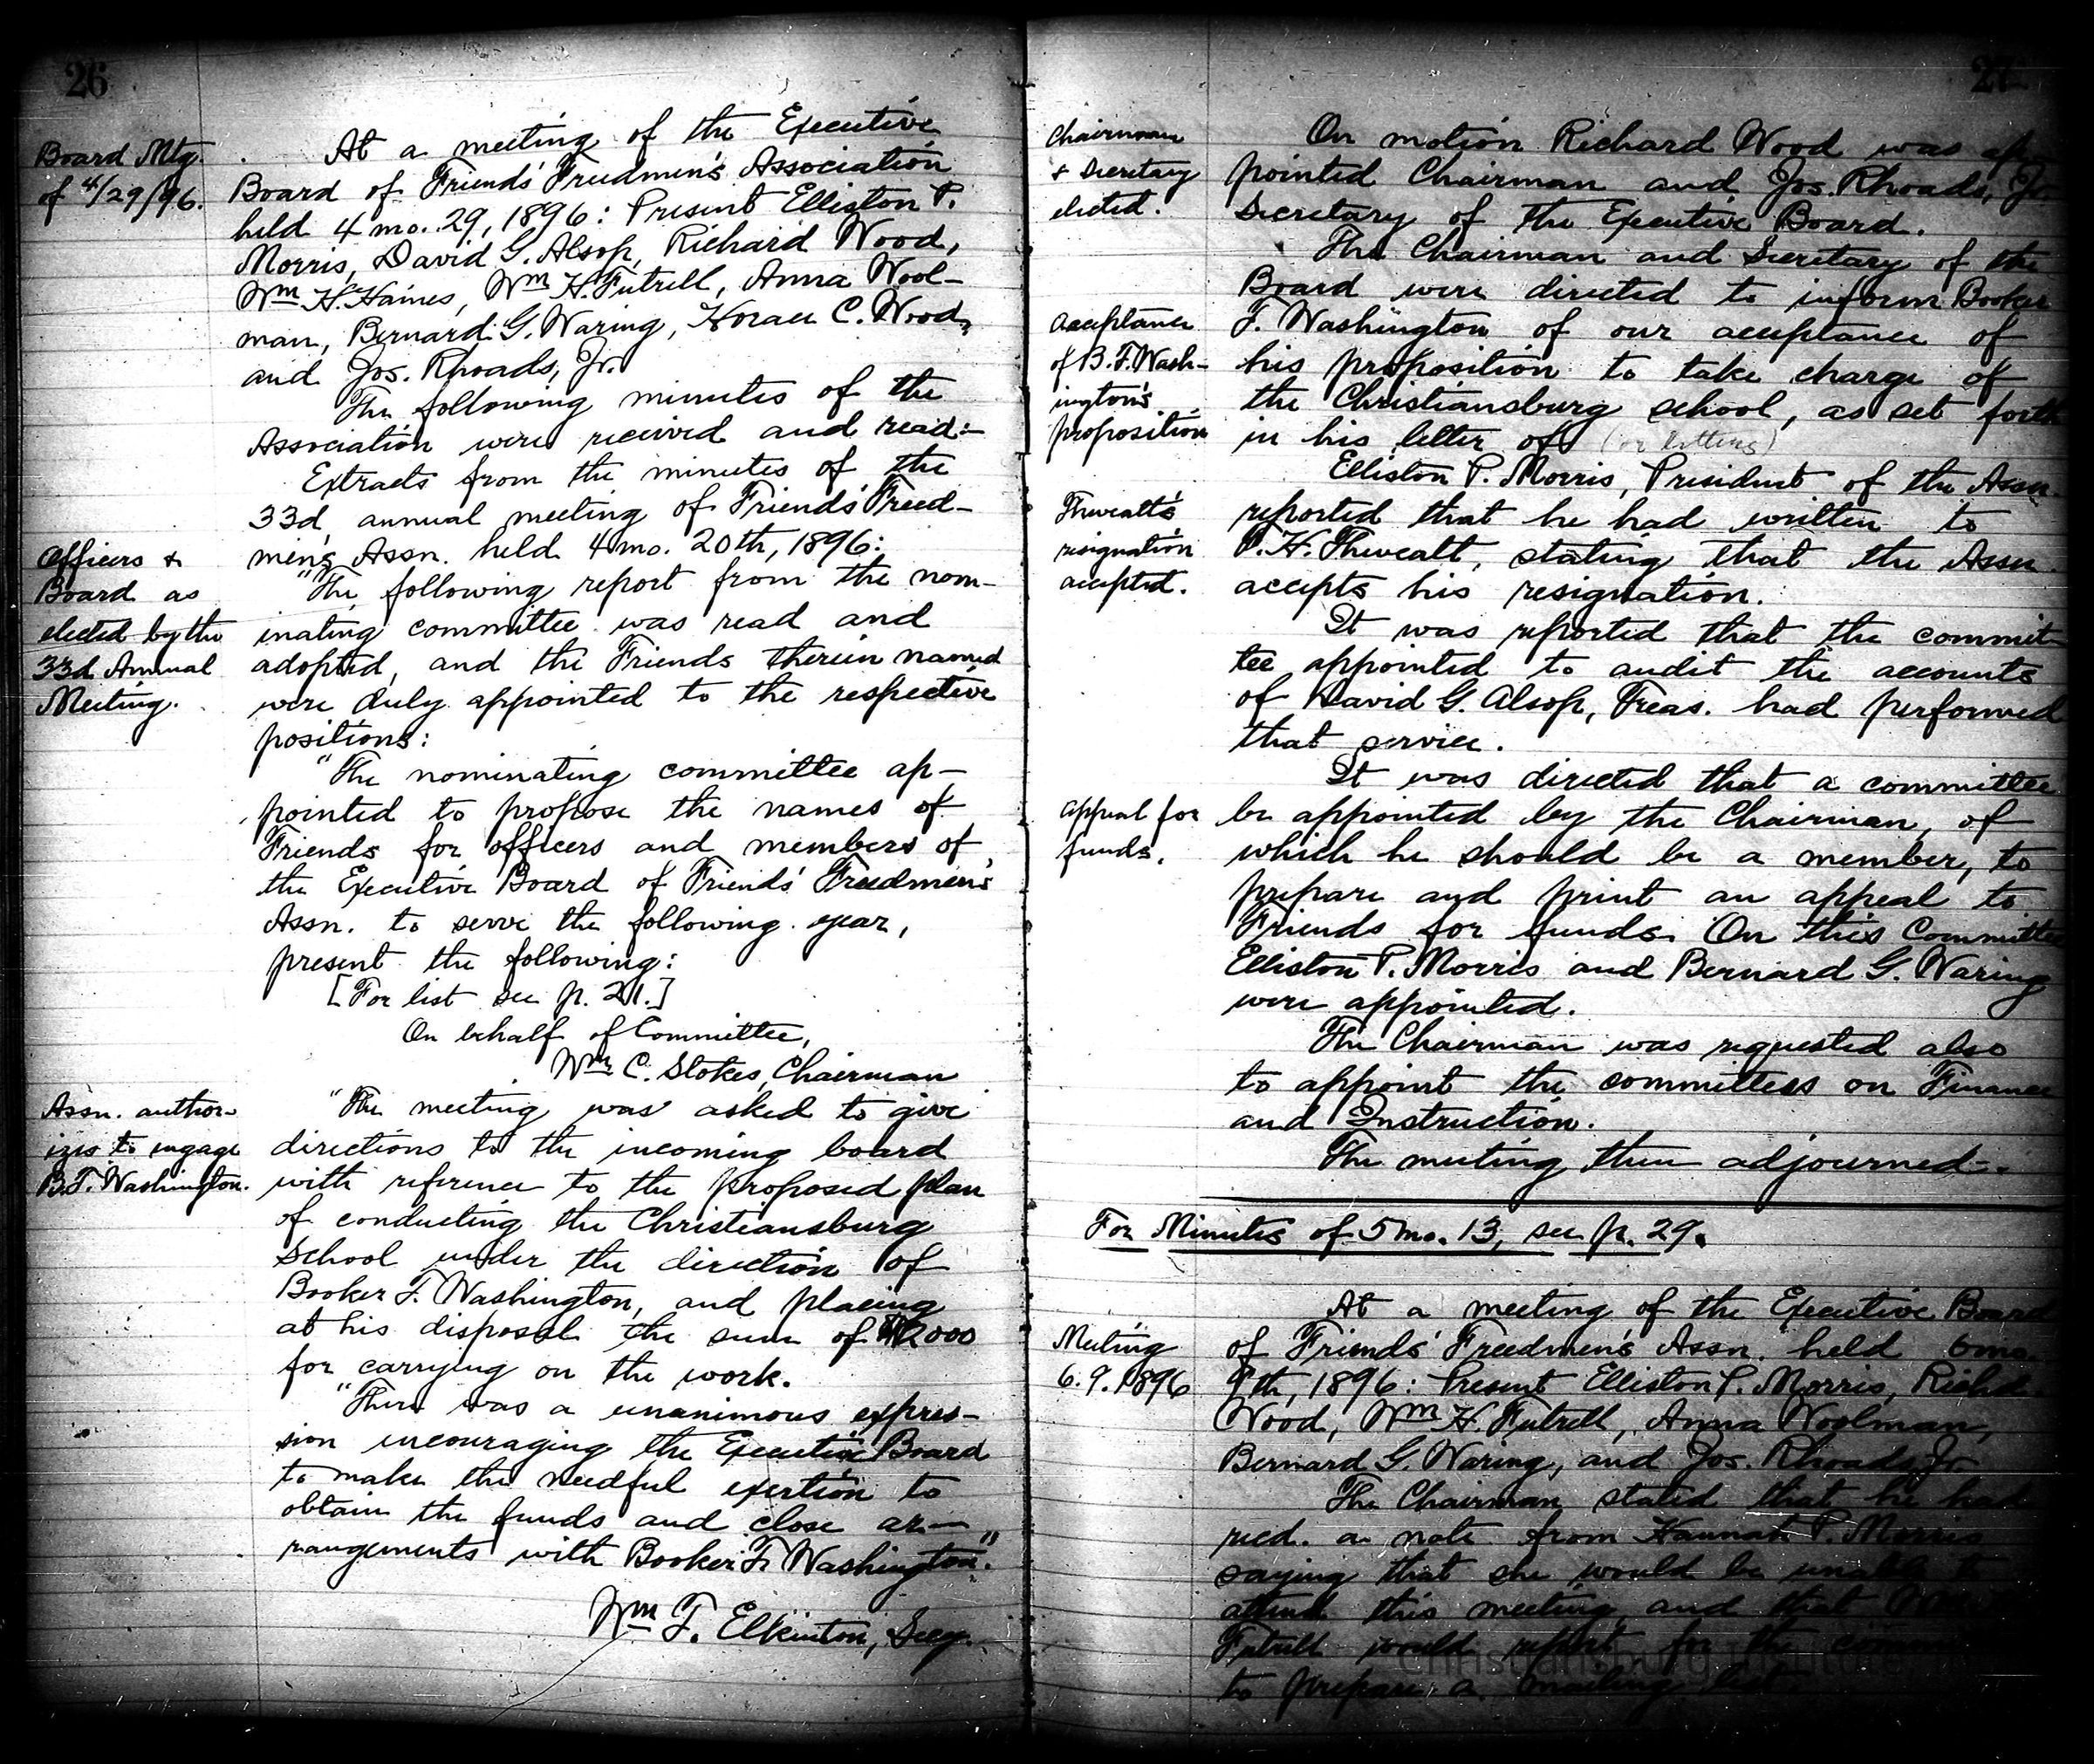 26
Board Mtg.
of 4/29/96.
At a meeting of the Executive
Board of Friends' Freedmen's Association
held 4 mo. 29, 1896: Present Elliston P.
Morris, David G. Alsop, Richard Wood,
Wm H. Haines, Wm H. Futrell, Anna Wool-
man, Bernard G. Waring, Horace C. Wood,
and Jos. Rhoads, Jr.
The following minutes of the
Association were received and read:-
Extracts from the minutes of the
33d annual meeting of Friends' Freed-
men's Assn. held 4 mo. 20th, 1896:
Officers &
Board as
elected by the
33d Annual
Meeting.
"The following report from the nom-
inating committee was read and
adopted, and the Friends therein named
were duly appointed to the respective
positions:
"The nominating committee ap-
pointed to propose the names of
Friends for officers and members of
the Executive Board of Friends' Freedmen's
Assn. to serve the following year,
present the following:
[For list see p. 21.]
On behalf of Committee,
Wm C. Stokes, Chairman
Assn. author-
izes to engage
B.T. Washington.
"The meeting was asked to give
directions to the incoming board
with reference to the proposed plan
of conducting the Christiansburg
School under the direction of
Booker T. Washington, and placing
at his disposal the sum of 2000
for carrying on the work.
"There was a unanimous expres-
sion encouraging the Executive Board
to make the needful exertion to
obtain the funds and close ar-
rangements with Booker T. Washington."
Wm T. Elkinton, Secy.
27
Chairman
& Secretary
elected.
On motion Richard Wood was ap-
pointed Chairman and Jos. Rhoads, Jr.
Secretary of the Executive Board.
The Chairman and Secretary of the
Board were directed to inform Booker
T. Washington of our acceptance of
his proposition to take charge of
the Christiansburg school, as set forth
in his letter of (or letters)
Acceptance
of B.T. Wash-
ington's
proposition
Elliston P. Morris, President of the Assn.
reported that he had written to
P. H. Thweatt, stating that the Assn.
accepts his resignation.
Thweatt's
resignation
accepted.
It was reported that the commit-
tee appointed to audit the accounts
of David G. Alsop, Treas. had performed
that service.
It was directed that a committee
be appointed by the Chairman, of
which he should be a member, to
prepare and print an appeal to
Friends for funds. On this Committee
Elliston P. Morris and Bernard G. Waring
were appointed.
Appeal for
funds.
The Chairman was requested also
to appoint the committees on Finance
and Instruction.
The meeting then adjourned.
For Minutes of 5 mo. 13, see p. 29.
Meeting
6. 9. 1896
At a meeting of the Executive Board
of Friends' Freedmen's Assn. held 6 mo.
9th, 1896: Present Elliston P. Morris, Richd
Wood, Wm H. Futrell, Anna Woolman,
Bernard G. Waring, and Jos. Rhoads, Jr.
The Chairman stated that he had
recd. a note from Hannah P. Morris
saying that she would be unable to
attend this meeting, and that Wm
Futrell would report for the
to prepare a mailing list.
Christiansburg Institute